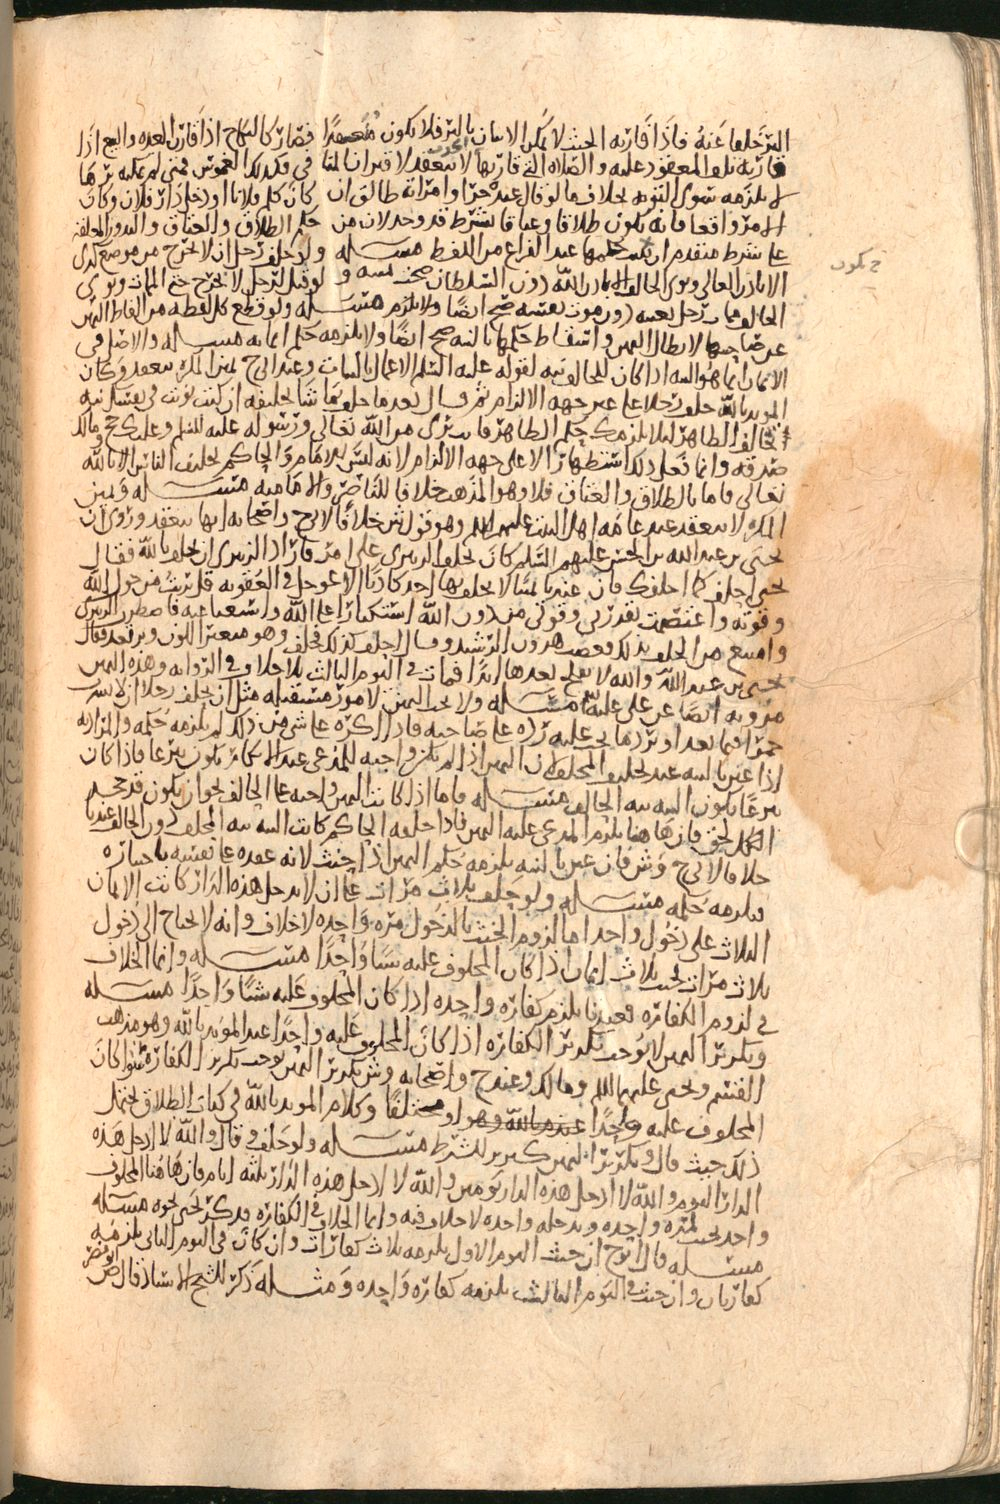 البر خلفا عنه فاذا قارنه الحنث لا يمكن الاتيان بالبر فلا يكون منعقدا فصار كالنكاح اذا قارن العده والبيع اذا
قارنه تلف المعقود عليه والصلاه التي قارنها الحدث لا تنعقد لاقتران المنافي فكذلك الغموس فمتى لم
يلزمه سوى التوبه بخلاف ما لو قال عبده حر او امراته طالق ان كان كلم فلانا او دخل دار فلان وكان
الامر واقعا فانه يكون طلاقا وعتاقا بشرط قد وجد لان من حكم الطلاق والعتاق والنذور المعلقه
على شرط متقدم ان حكمها عند الفراغ من اللفظ مسله ولو حلف رجل ان لا يخرج من موضع كذي
الا باذن الوالي ونوى الحالف الا باذن الله دون السلطان صحت نيته ولو قيل لرجل لا يخرج حتى الممات ونوى
الحالف ممات رجل بعينه دون موت نفسه صح ايضا ولا يلزم مسله ولو قطع كل لفظه من الفاظ اليمين
عن صاحبها لابطال اليمين واسقاط حكمها بالنيه صح ايضا ولا يلزمه حكم ايمانه مسله والاصل في
الايمان انما هو النيه اذا كان للحالف نيه لقوله عليه السلم الاعمال بالنيات وعند ابي ح يمين المكره تنعقد وكان
المويد بالله حلف رجلا على غير جهه الالزام ثم قال بعد ما حلف بما شا تحليفه ان كنت نويت في نفسك نيه
تخالف الظاهر ليلا يلزمك حكم الظاهر فانت بري من الله تعالى ورسوله عليه السلم وعليك حج ومالك
صدقه وانما فعل ذلك استظهارا لا على جهه الالزام لانه ليس للامام والحاكم تحليف الناس الا بالله
تعالى فاما بالطلاق والعتاق فلا وهو المذهب خلافا للناصر والاماميه مسله ويمين
المكره لا تنعقد عند عامه اهل البيت عليهم السلم وهو قول ش خلافا لابي ح واصحابه انها تنعقد وروى ان
يحيى بن عبد الله بن الحسن عليهم السلم كان يحلف الزبيري على امر فاراد الزبيري ان يحلف بالله فقال
يحيى احلف كما احلفك فان عندنا يمينا لا يحلف بها احد كاذبا الا عوجل في العقوبه قل برئت من حول الله
وقوته واعتصمت بقدرتي وقوتي من دون الله استكبارا على الله واستغنا عنه فاضطرب الزبيري
وامتنع من الحلف بذلك فغضب هرون الرشيد وقال احلف كذلك فحلف وهو متغير اللون ويرتعد فقال
يحيى بن عبد الله والله لا يفلح بعدها ابدا فمات في اليوم الثالث بلا خلاف في الروايه وهذه اليمين
مرويه ايضا عن علي عليه السلم مسله ولا تجب اليمين لامور مستقبله مثل ان يحلف رجلا ان لا يشرب
خمرا فيما بعد او يرد ما يجب عليه رده على صاحبه فاذا اكره على شي من ذلك لم يلزمه حكمه والمراد به
اذا عين بالنيه عند تحليف المحلف ان اليمين اذا لم تكن واجبه للمدعي عند الانكار يكون تبرعا فاذا كان
تبرعا تكون النيه نيه الحالف مسله فاما اذا كانت اليمين واجبه على الحالف بجواز يكون قد جحد
الكل لحق فان هاهنا يلزم المدعى عليه اليمين فاذا حلفه الحاكم كانت النيه نيه المحلف دون الحالف عندنا
خلافا لابي ح وش فان عين بالنيه يلزمه حكم اليمين اذا حنث لانه عقده على نفسه باختياره
فيلزمه حكمه مسله ولو حلف ثلاث مرات على ان لا يدخل هذه الدار كانت الايمان
الثلاث على دخول واحد اما لزوم الحنث بالدخول مره واحده لا خلاف وانه لا يحتاج الى دخول
ثلاث مرات لحنث ثلاث ايمان اذا كان المحلوف عليه شيا واحدا مسله وانما الخلاف
في لزوم الكفاره فعندنا يلزم كفاره واحده اذا كان المحلوف عليه شيئا واحدا مسله
وتكرير اليمين لا يوجب تكرير الكفاره اذا كان المحلوف عليه واحدا عند المويد بالله وهو مذهب
القسم ويحيى عليهما السلم ومالك وعند ح واصحابه وش تكرير اليمين يوجب تكرير الكفاره سوا كان
المحلوف عليه واحدا او مختلفا وكلام المويد بالله في كتاب الطلاق يحتمل
ذلك حيث قال وتكرير اليمين كتكرير للشرط مسله ولو حلف فقال والله لا ادخل هذه
الدار اليوم والله لا ادخل هذه الدار يومين والله لا ادخل هذه الدار ثلثه ايام فان هاهنا المحلوف
واحد يحنث لمره واحده وبدخله واحده لا خلاف فيه وانما الخلاف في الكفاره وذكر يحيى نحوه مسله
مسله قال ابو ح ان حنث اليوم الاول يلزمه ثلاث كفارات وان كان في اليوم الثاني يلزمه
كفارتان وان حنث في اليوم الثالث يلزمه كفاره واحده ومثله ذكر للشيخ الاستاذ قال ابو مضر
ح يكون